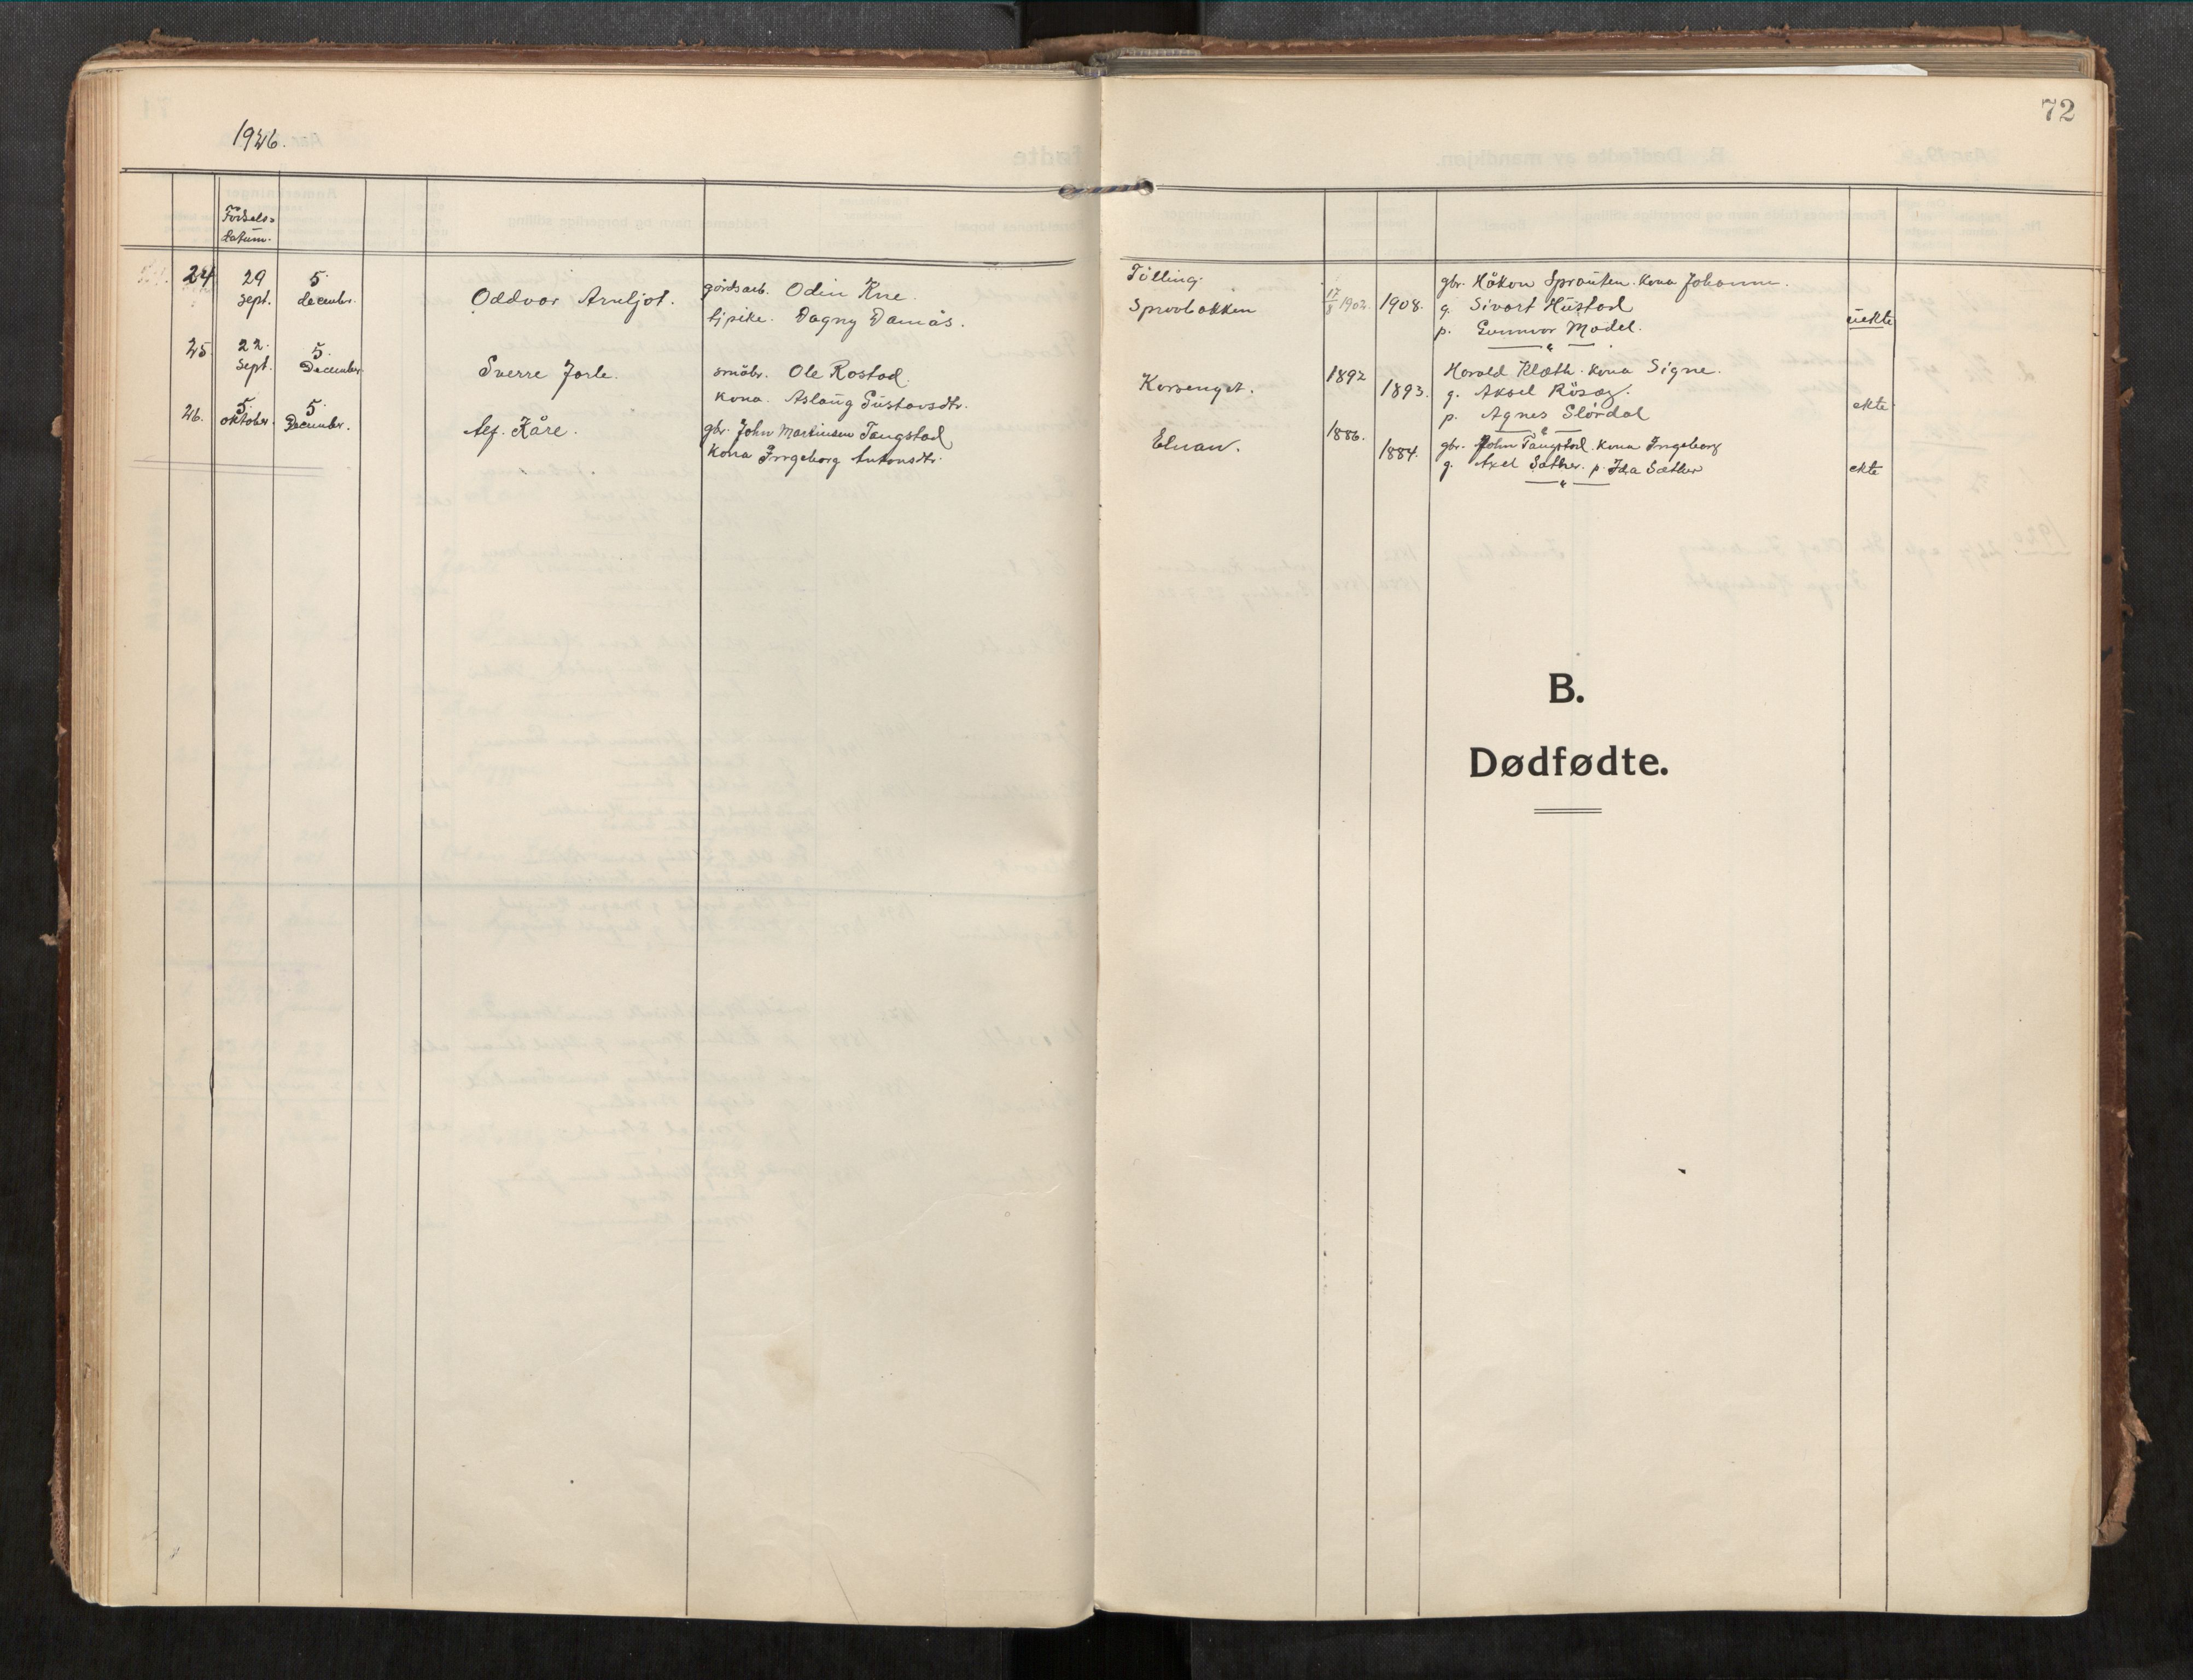 1926.
72
Fødsels=
datum.
24 29 sept. 5 decembr. Oddvar Arnljot. gårdsarb. Odin Kne.
tjpike. Dagny Damås.
25 22. sept. 5. December. Sverre Jarle. småbr. Ole Rostad.
kona. Aslaug Gustavsdtr.
26. 5. oktober. 5. December. Alf. Kåre. gbr. John Martinsen Tangstad
kona Ingeborg Antonsdtr.
Tilling.
Sprovbakken 17/8 1902. 1908. gbr. Håkon Sprauten. kona Johanne.
g. Sivart Hustad
p. Gunnvor Model. uekte
Korsenget. 1892 1893. Harald Klæth. kona Signe.
g. Aksel Rösæg.
p. Agnes Slördal ekte
Elnan. 1886. 1884. gbr. John Tangstad. kona Ingeborg
g. Axel Sæther. p. Ida Sæther ekte
B.
Dødfødte.